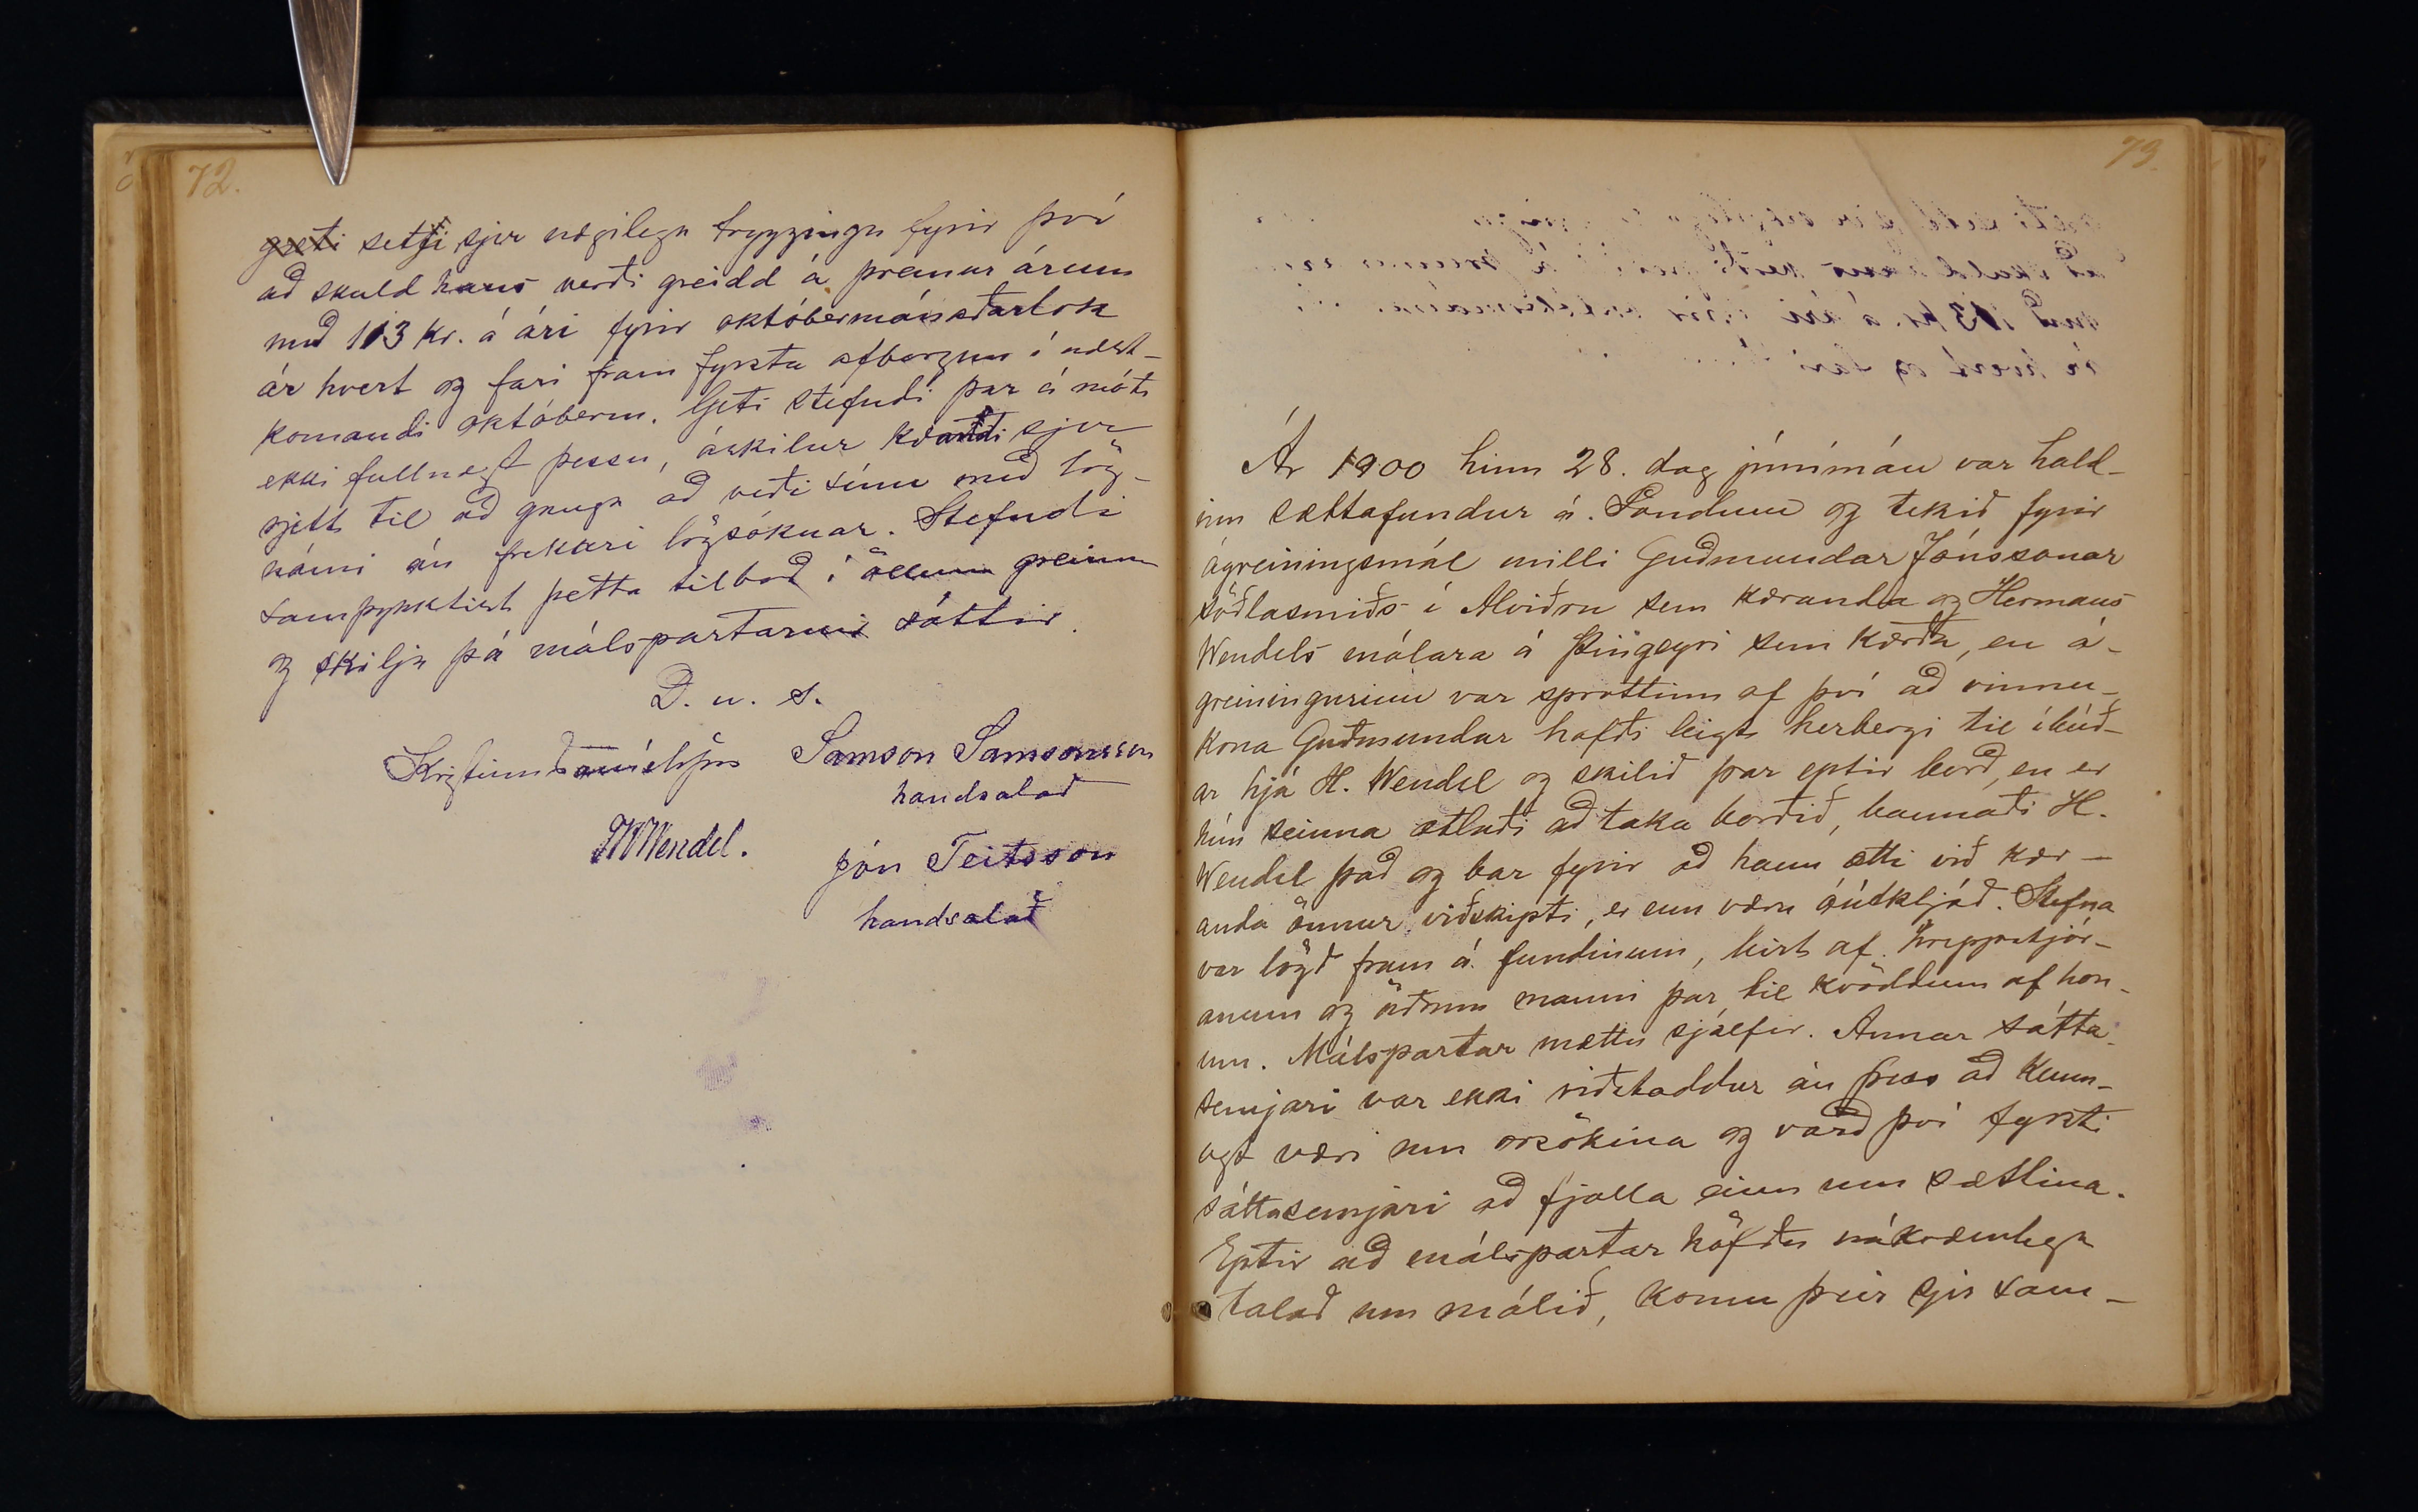 72.
geti setji sjer nægilega tryggingu fyrir því
að skuld hans verði greidd á þremur árum
með 113 kr. á ári fyrir októbermánaðarlok
ár hvert og fari fram fyrsta afborgun í næst-
komandi októberm. Geti stefndi þar á móti
ekki fullnægt þessu, áskilur kærandi sjer
rjett til að ganga að veði sínu með lög-
námi án frekari lögsóknar. Stefndi
samþykktist þetta tilboð í öllum greinum
og skilja þá málspartarnir sáttir.
D. u. s.
Kristinn Daníelsson Samson Samsonsson
handsalað
FRWendel. Jón Teitsson
handsalað
73.
Ár 1900 hinn 28. dag júnímán var hald-
inn sættafundur á Söndum og tekið fyrir
ágreiningsmál milli Guðmundar Jónssonar
söðlasmiðs í Alviðru sem kæranda og Hermans
Wendels málara á Þingeyri sem kærða, en á-
greiningurinn var sprottinn af því að vinnu-
kona Guðmundar hafði leigt herbergi til íbúð-
ar hjá H. Wendel og skilið þar eptir borð, en er
hún seinna ætlaði að taka borðið, bannaði H.
Wendel það og bar fyrir að hann ætti við kær-
anda önnur viðskipti, er enn væru óútkljáð. Stefna
var lögð fram á fundinum, birt af hreppstjór-
anum og öðrum manni þar til kvöddum af hon-
um. Málspartar mættu sjálfir. Annar sátta-
semjari var ekki viðstaddur án þess að kunn-
ugt væri um orsökina og varð því fyrsti
sáttasemjari að fjalla einn um sættina.
Eptir að málspartar höfðu nákvæmlega
talað um málið, komu þeir sjer sam-